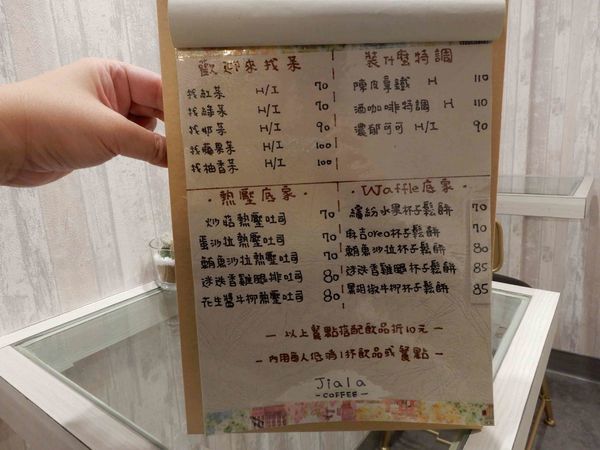 歡迎來找茶
找紅茶 H/I 70
找綠茶 H/I 70
找奶茶 H/I 90
找蘋果茶 H/I 100
找柚香茶 H/I 100
裝什麼特調
陳皮拿鐵 H 110
酒咖啡特調 H 110
濃郁可可 H/I 90
·熱壓底家·
炒菇熱壓吐司 70
蛋沙拉熱壓吐司 70
鮪魚沙拉熱壓吐司 70
迷迭香雞腿排吐司 80
花生醬牛柳熱壓吐司 80
·Waffle底家·
繽紛水果杯子鬆餅 70
麻吉oreo杯子鬆餅 70
鮪魚沙拉杯子鬆餅 80
迷迭香雞腿杯子鬆餅 85
黑胡椒牛柳杯子鬆餅 85
- 以上餐點搭配飲品折10元 -
- 內用每人低消1杯飲品或餐點 -
Jiala
- COFFEE -